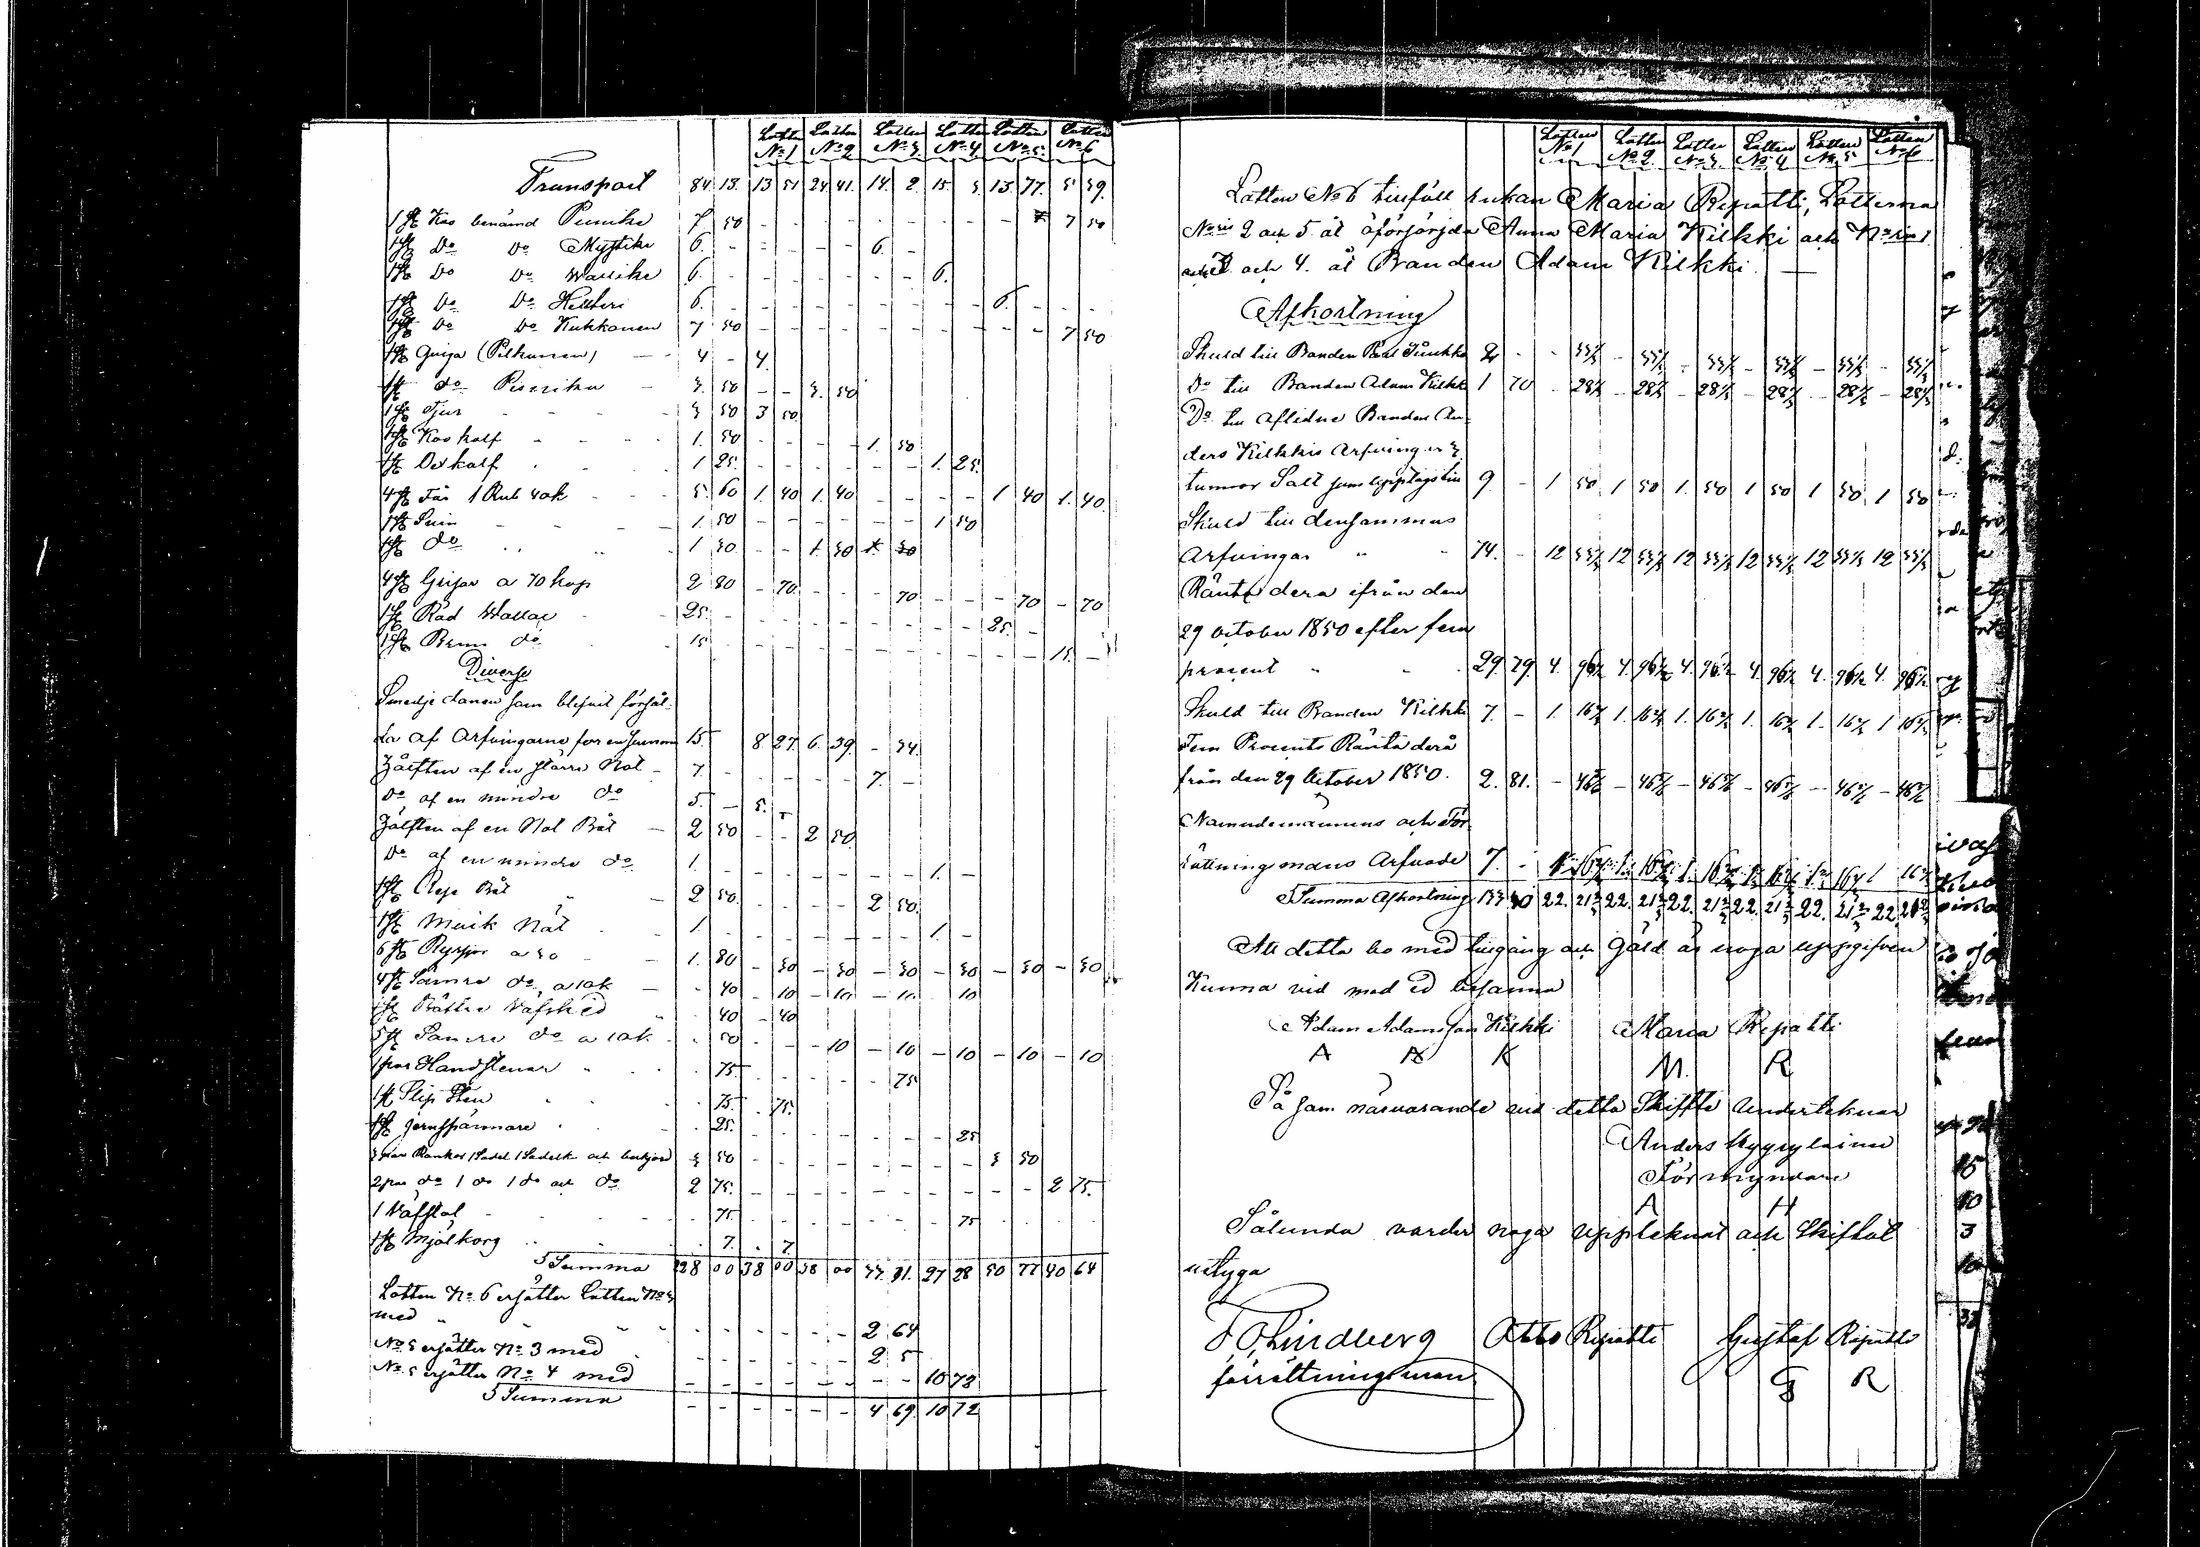 Lotten No 1 Lotten No 2 Lotten No 3 Lotten No 4 Lotten No 5 Lotten No 6
Transport 84 13. 13 51 24 41. 14. 2. 15. 3. 13. 77. 3 39.
1 st Ko benämd Punike 7 50 - - - - 7 50
1 st Do Do Mystike 6. - - - 6. -
1 st Do Do Wasike 6. - - - 6.
1 st Do Do 6. - - - 6. -
1 st Do Do Kukkonen 7 50 - - - 7 50
1 st Quiga (Pilkunen) - 4 - 4.
1 st do Punika - 3. 50 - - 3. 50
1 st Tjur - - - 3 50 3 50
1 st Koo kalf - - - 1. 50 - - 1. 50
1 st Oxkalf 1 25. - - 1. 25.
4 st Får 1 Rub 40k - - 5 60 1. 40 1. 40 - - - - 1 40 1. 40
1 st Suin - - - 1. 50 - - 1 50
1 st do 1 50. - - 1. 50
4 st Grisar a 70 kop 2 80 - 70. - 70 - - - 70 - 70
1 st Röd Wallac - 25. - - - 25. -
1 st Brun do 15 - - - 15. -
Diverse
Smedje som blifvit försål-
da af Arfvingarne for en Summa 15. 8 27 6. 39. - 34.
Hälften af en större Not - 7. - - - 7. -
Do af en mindre do 5. - 5. -
Hälften af en Not Båt - 2 50 - - 2 50.
Do af en mindre do 1. - - - 1. -
1 st Båt 2 50. - - - 2 50.
1 st Nät 1. - - - 1. -
6 st Ryssjor a 30 - 1. 80 - 30 - 30 - 30 - 30 - 30 - 30
4 st Sämre do a 10k - 40 - 10 - 10 - 10 - 10
1 st Bättre Väfsked 40 - 40
5 st Sämre do a 10k 50 - - 10 - 10 - 10 - 10 - 10
1 par Handstenar 75. - - - 75
1 st Slip Sten 75. - 75.
1 st jernspännare 25. - - - 25
3 par Rankor 1 Sadel 1 och 3 50 - - - 3 50
2 par do 1 do 1 do och do 2 75. - - - 2 75.
1 Väfstol 75. - - - 75
1 st Mjölkorg 7. 7
Summa 228 00 38 00 38 00 33. 31. 27 28 50 77 40 64
Lotten No 6 ersätter Lotten No 3
med - - - 2 64
No 5 ersätter No 3 med 2 5
No 5 ersätter No 4 med - - - 10 73
Summa - - - 4 69. 10 72
Lotten No 1 Lotten No 2 Lotten No 3 Lotten No 4 Lotten No 5 Lotten No 6
Lotten No 6 tillföll enkan Maria Ripatti, Lotterna
Noris 2 och 5 åt oförsörjda Anna Maria Kilkki och 1
och 4. åt Bonden Adam Kilkki. -
Afkortning
Skuld till Bonden 2 - - 33⅓ - 33⅓ - 33⅓ - 33⅓ - 33⅓ - 33⅓
Do till Bonden Adam Kilkki 1 70 - 28⅓ - 28⅓ - 28⅓ - 28⅓ - 28⅓ - 28⅓
Do till aflidne Bonden An-
ders Kilkkis Arfvingar 3
tunnor Salt som upptogs till 9 - 1 50 1 50 1. 50 1 50 1 50 1 50
Skuld till densammas
Arfvingar 74. - 12 33⅓ 12 33⅓ 12 33⅓ 12 33⅓ 12 33⅓ 12 33⅓
Ränta dera ifrån den
29 October 1850 efter fem
procent 29. 79. 4. 96½ 4. 96½ 4. 96½ 4. 96½ 4. 96½ 4. 96½
Skuld till Bonden Kilkki 7. - 1. 16⅔ 1. 16⅔ 1. 16⅔ 1. 16⅔ 1. 16⅔ 1 16⅔
Fem Procents Ränta derå
från den 29 October 1850. 2. 81. - 46⅚ - 46⅚ - 46⅚ - 46⅚ - 46⅚ - 46⅚
Nämndemannens och För-
rättningsmans Arfvode 7. - 1 16⅔ 1. 16⅔ 1. 16⅔ 1. 16⅔ 1. 16⅔ 1 16⅔
Summa Afkortning 133 30 22. 21⅔ 22. 21⅔ 22. 21⅔ 22. 21⅔ 22. 21⅔ 22 21⅔
Att detta bo med tillgång och Gäld är noga uppgifven
Kunna vid med Ed besanna
Adam Adamsson Kilkki Maria Ripatti
A A K M. R
På som närvarande vid detta Skifte undertecknar
Anders
Förmyndare
A H
Sålunda vorder noga upptecknat och Skiftat
Lindberg Otto Ripatti Gustaf Ripatti
förrättningsman G R